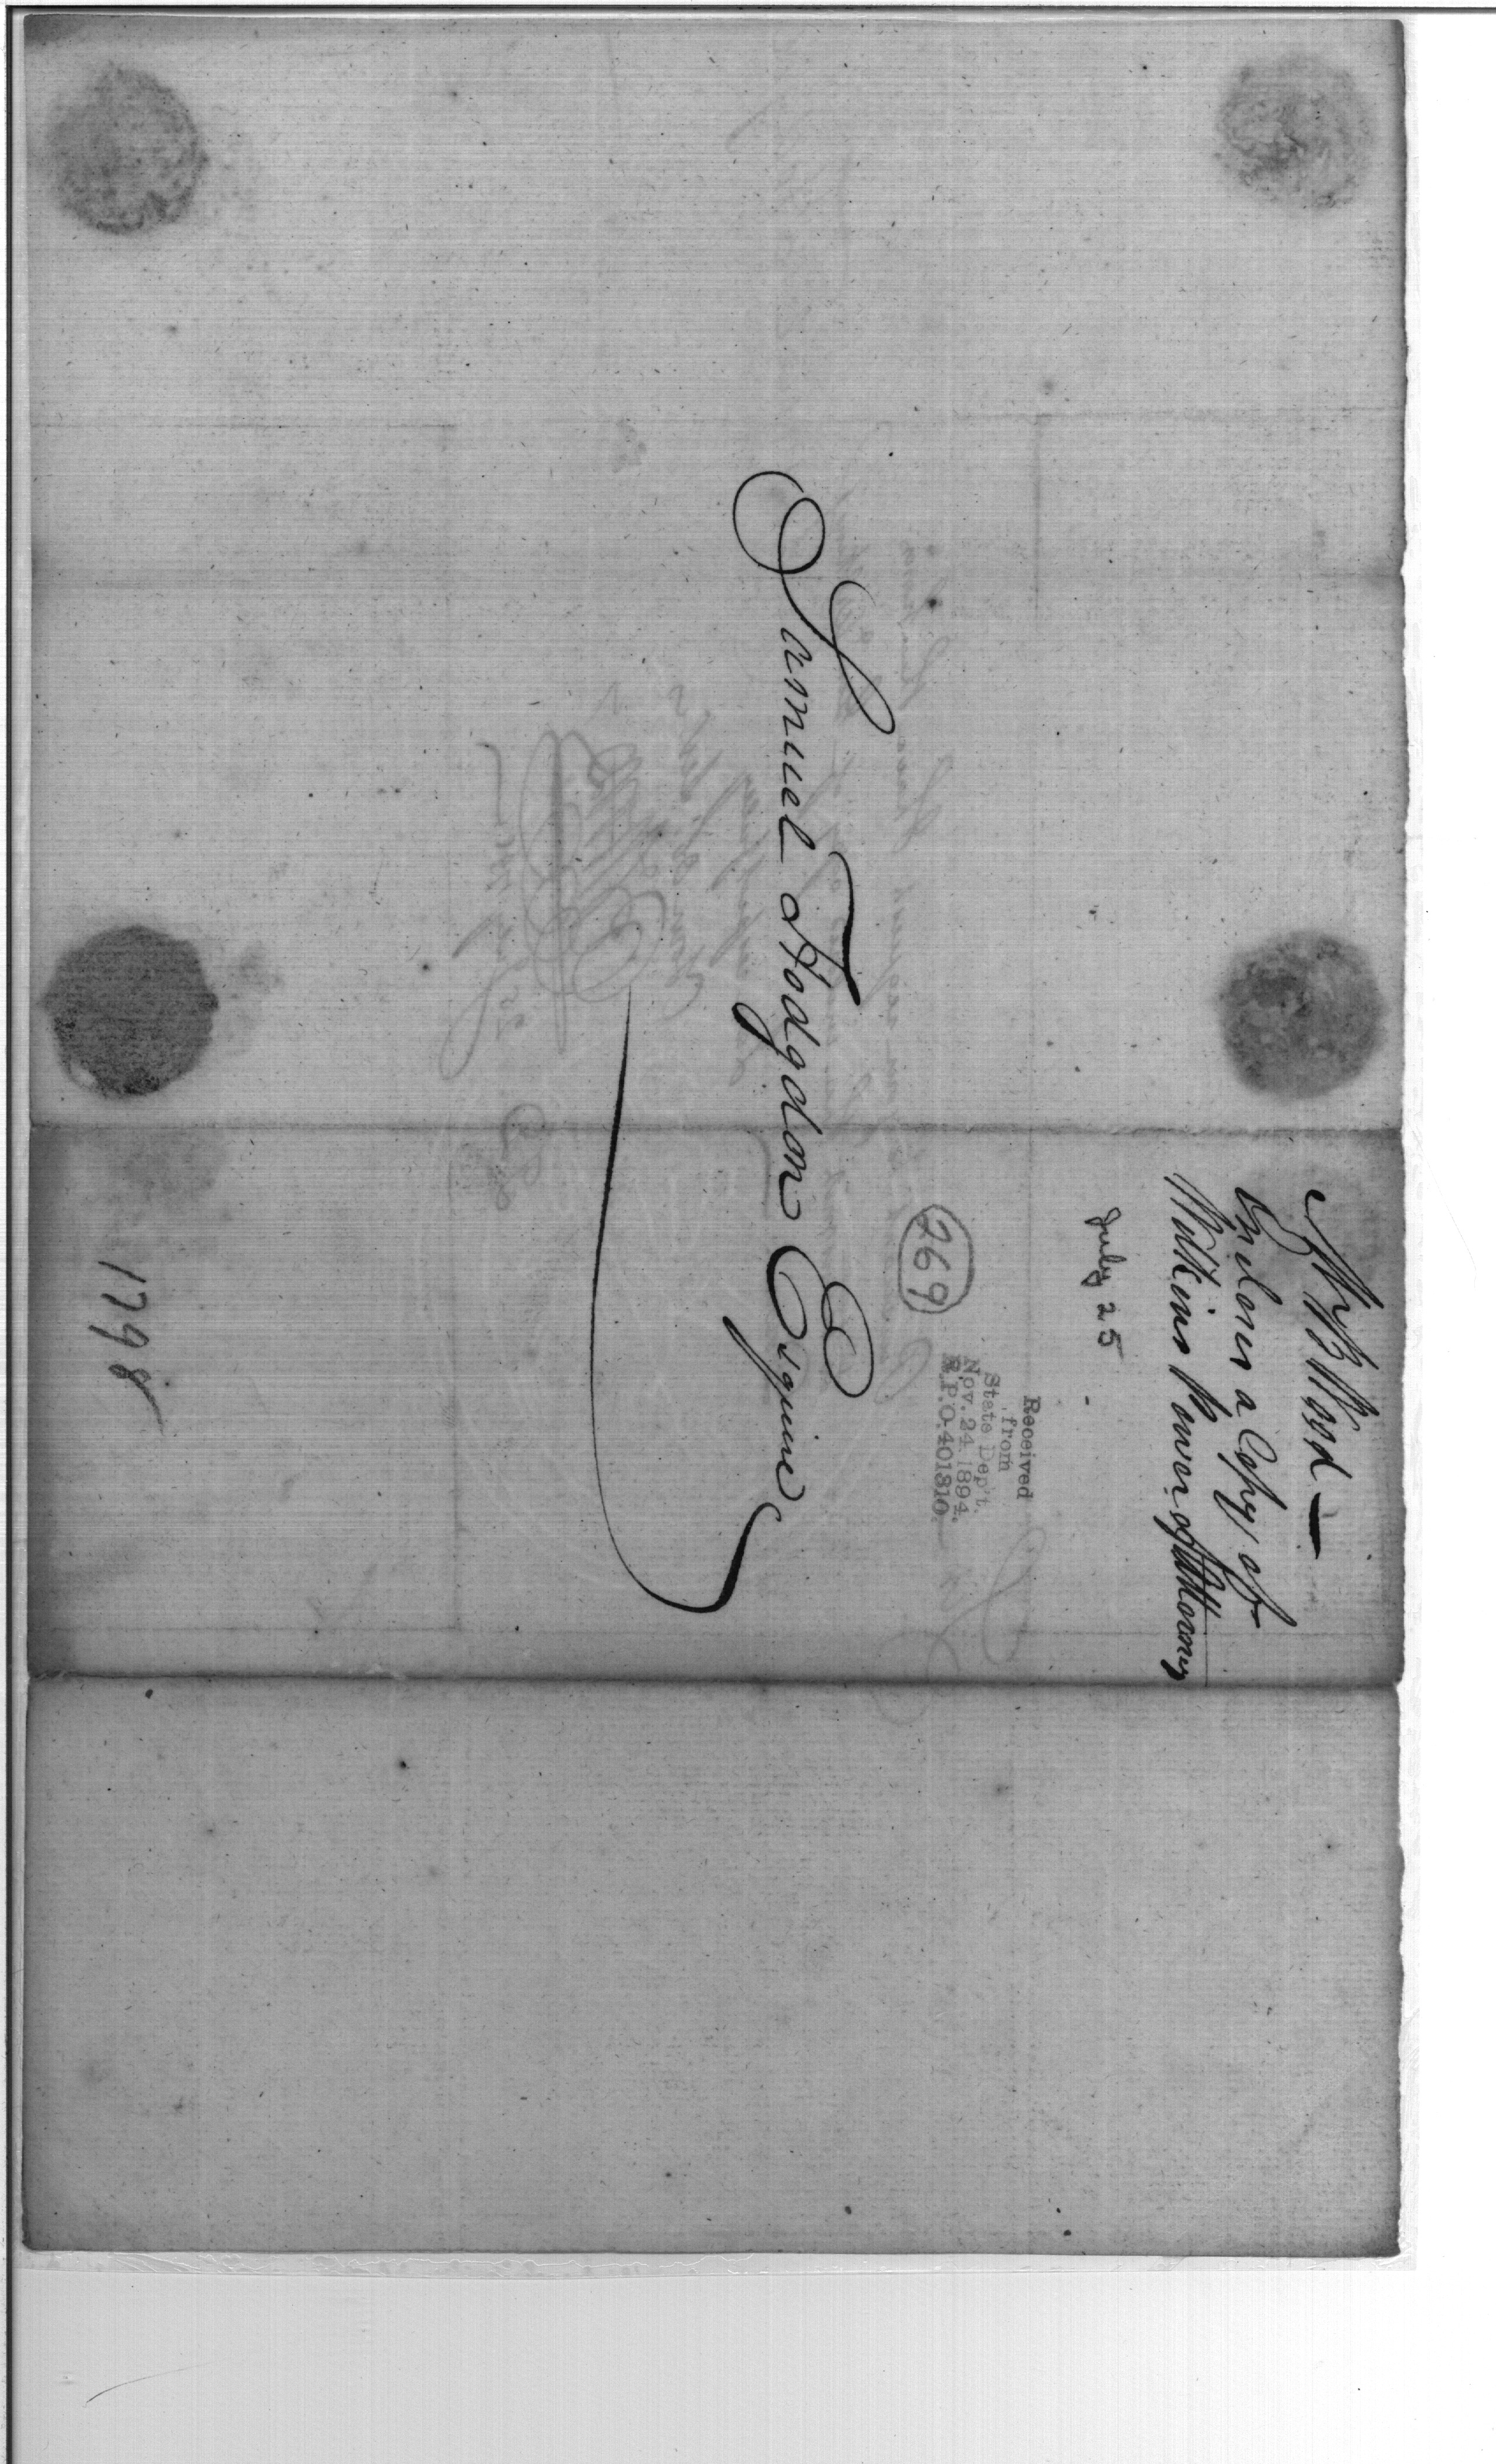 Wm B Wood —
Encloses a Copy of
Wilkins Power of Attorney
July 25
Received
from
State Dep't.
Nov. 24, 1894.
R.P.O. 401310.
269
Samuel Hodgdon Esquire
1798